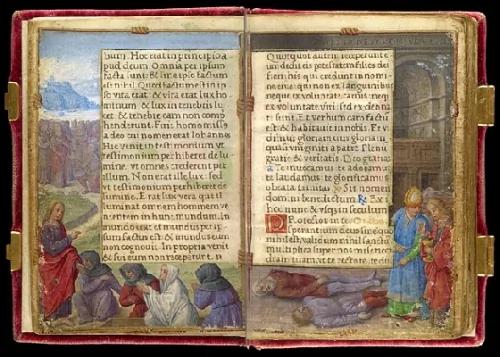 bum. Hoc erat in principio a
pud deum. Omnia per ipsum
facta sunt: & sine ipso factum
est nihil. Quod factum in ip
so vita erat & vita erat lux ho
minum & lux in tenebris lu
cet & tenebre eam non com
Fuit homo
a deo cui nomen erat Iohannes
Hic venit in testimonium vt
testimonium perhiberet de lu
mine. vt omnes crederent per
illum. Non erat ille lux: sed
vt testimonium perhiberet de
lumine. Erat lux vera que il
luminat omnem hominem ve
nientem in hunc mundum. In
mundo erat & mundus per ip
sum factus est & mundus eum
non cognovit. In propria venit
& sui eum non receperunt.
Quotquot autem receperunt e
um dedit eis potestatem filios dei
fieri his qui credunt in nomi
ne eius: qui non ex sanguinibus
neque ex voluntate carnis neque
ex voluntate viri sed ex deo na
ti sunt. Et verbum caro fac
tum est & habitavit in nobis. Et vi
dimus gloriam eius gloriam
quasi vnigeniti a patre plenum
gratie & veritatis. Deo gratias
Te invocamus te adora
te laudamus te glorificamus
o beata trinitas Sit nomen
domini benedictum Ex
hoc nunc & vsque in seculum
Protector in te
sperantium deus sine quo
nihil est validum nihil sanctum
multiplica super nos misericor
diam tuam vt te rectore te du